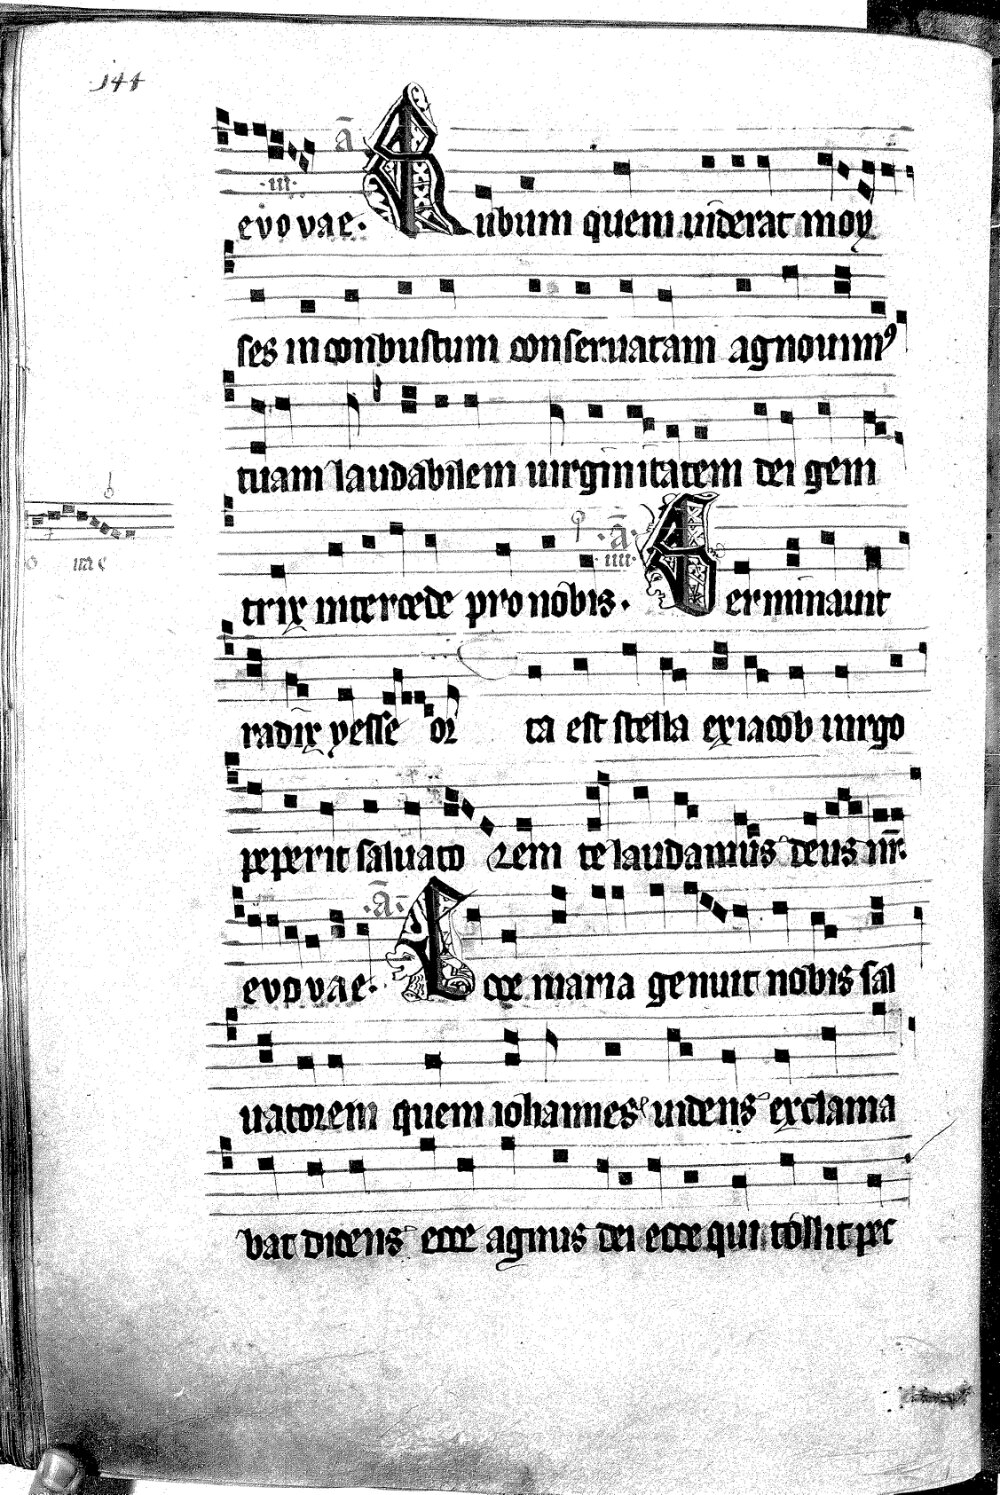 144
ā
·iii·
evovae· Rubum quem uiderat moy
ses inconbustum conseruatam agnouim⁹
tuam laudabilem uirginitatem dei geni
ā
·iiii·
trix intercede pro nobis· Germinauit
radix yesse or ta est stella exiacob uirgo
uae
peperit saluato rem te laudamus deus nr̄.
·ā·
evovae· Ecce maria genuit nobis sal
uatorem quem iohannes uidens exclama
bat dicens ecce agnus dei ecce qui tollit pec